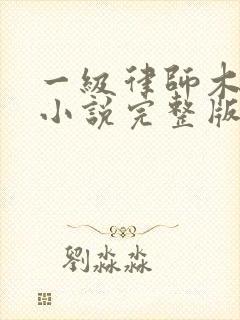 一級律師木
小說完整版
劉淼淼